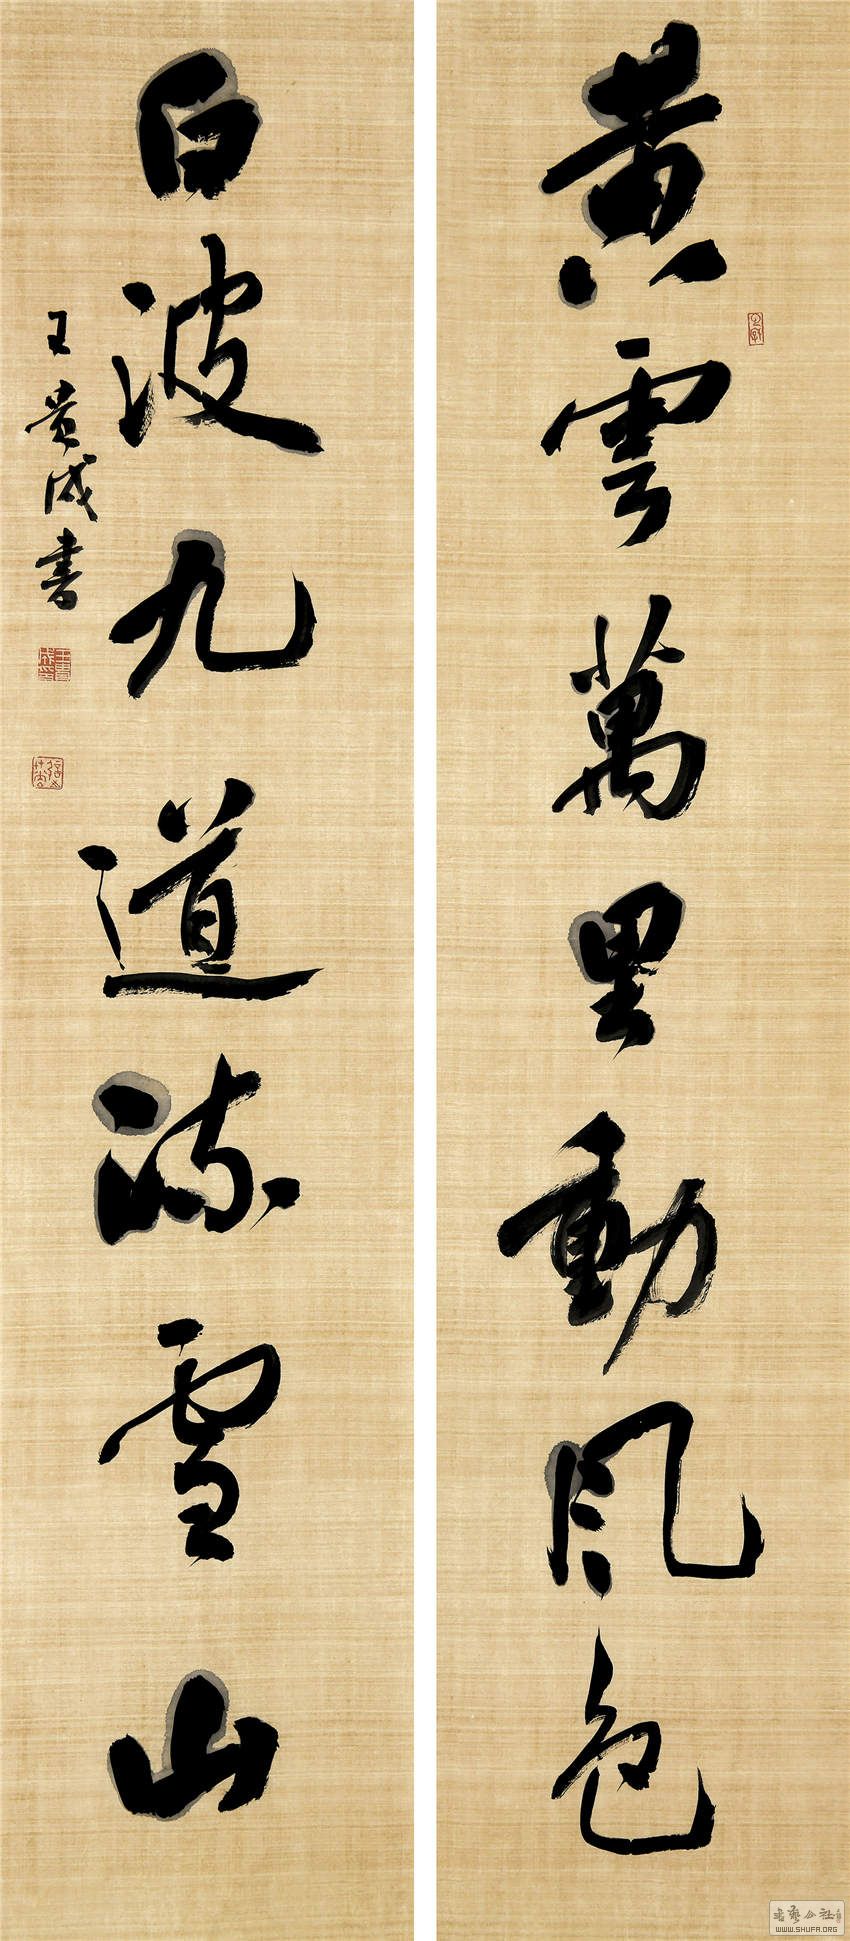 黄雲萬里動風色
白波九道流雪山
王贵成書
書藝公社
WWW.SHUFA.ORG